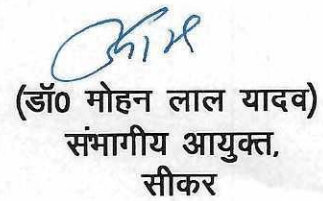 (डॉ0 मोहन लाल यादव)
संभागीय आयुक्त,
सीकर